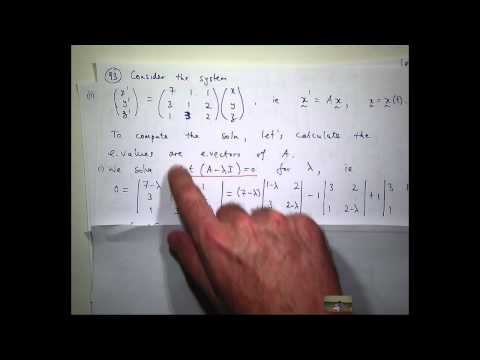 93 Consider the system
(ii) (x' y' z') = (7 1 1 3 1 2 1 3 2) (x y z), ie x' = Ax, x = x(t).
To compute the soln, let's calculate the
e.values are e.vectors of A.
(i) We solve (A-λI) = 0 for λ, ie
0 = | 7-λ 1 3 | = (7-λ) | 1-λ 2 3 2-λ | - 1 | 3 2 1 2-λ | + 1 | 3 1